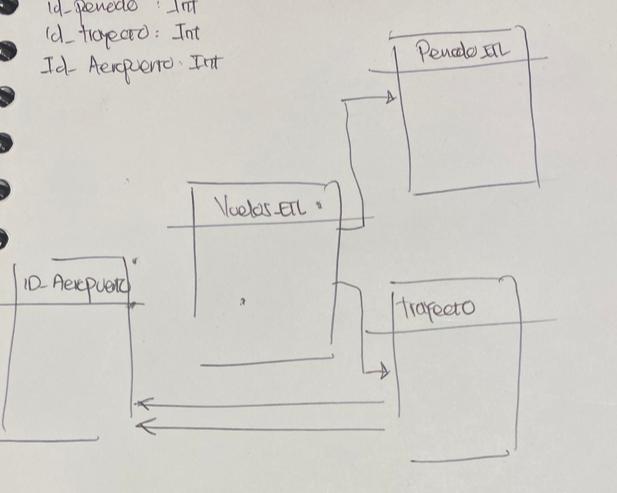 Id_periodo : Int
Id_trayecto : Int
Id_Aeropuerto : Int
Periodo_ETL
Vuelos_ETL
ID_Aeropuerto
trayecto